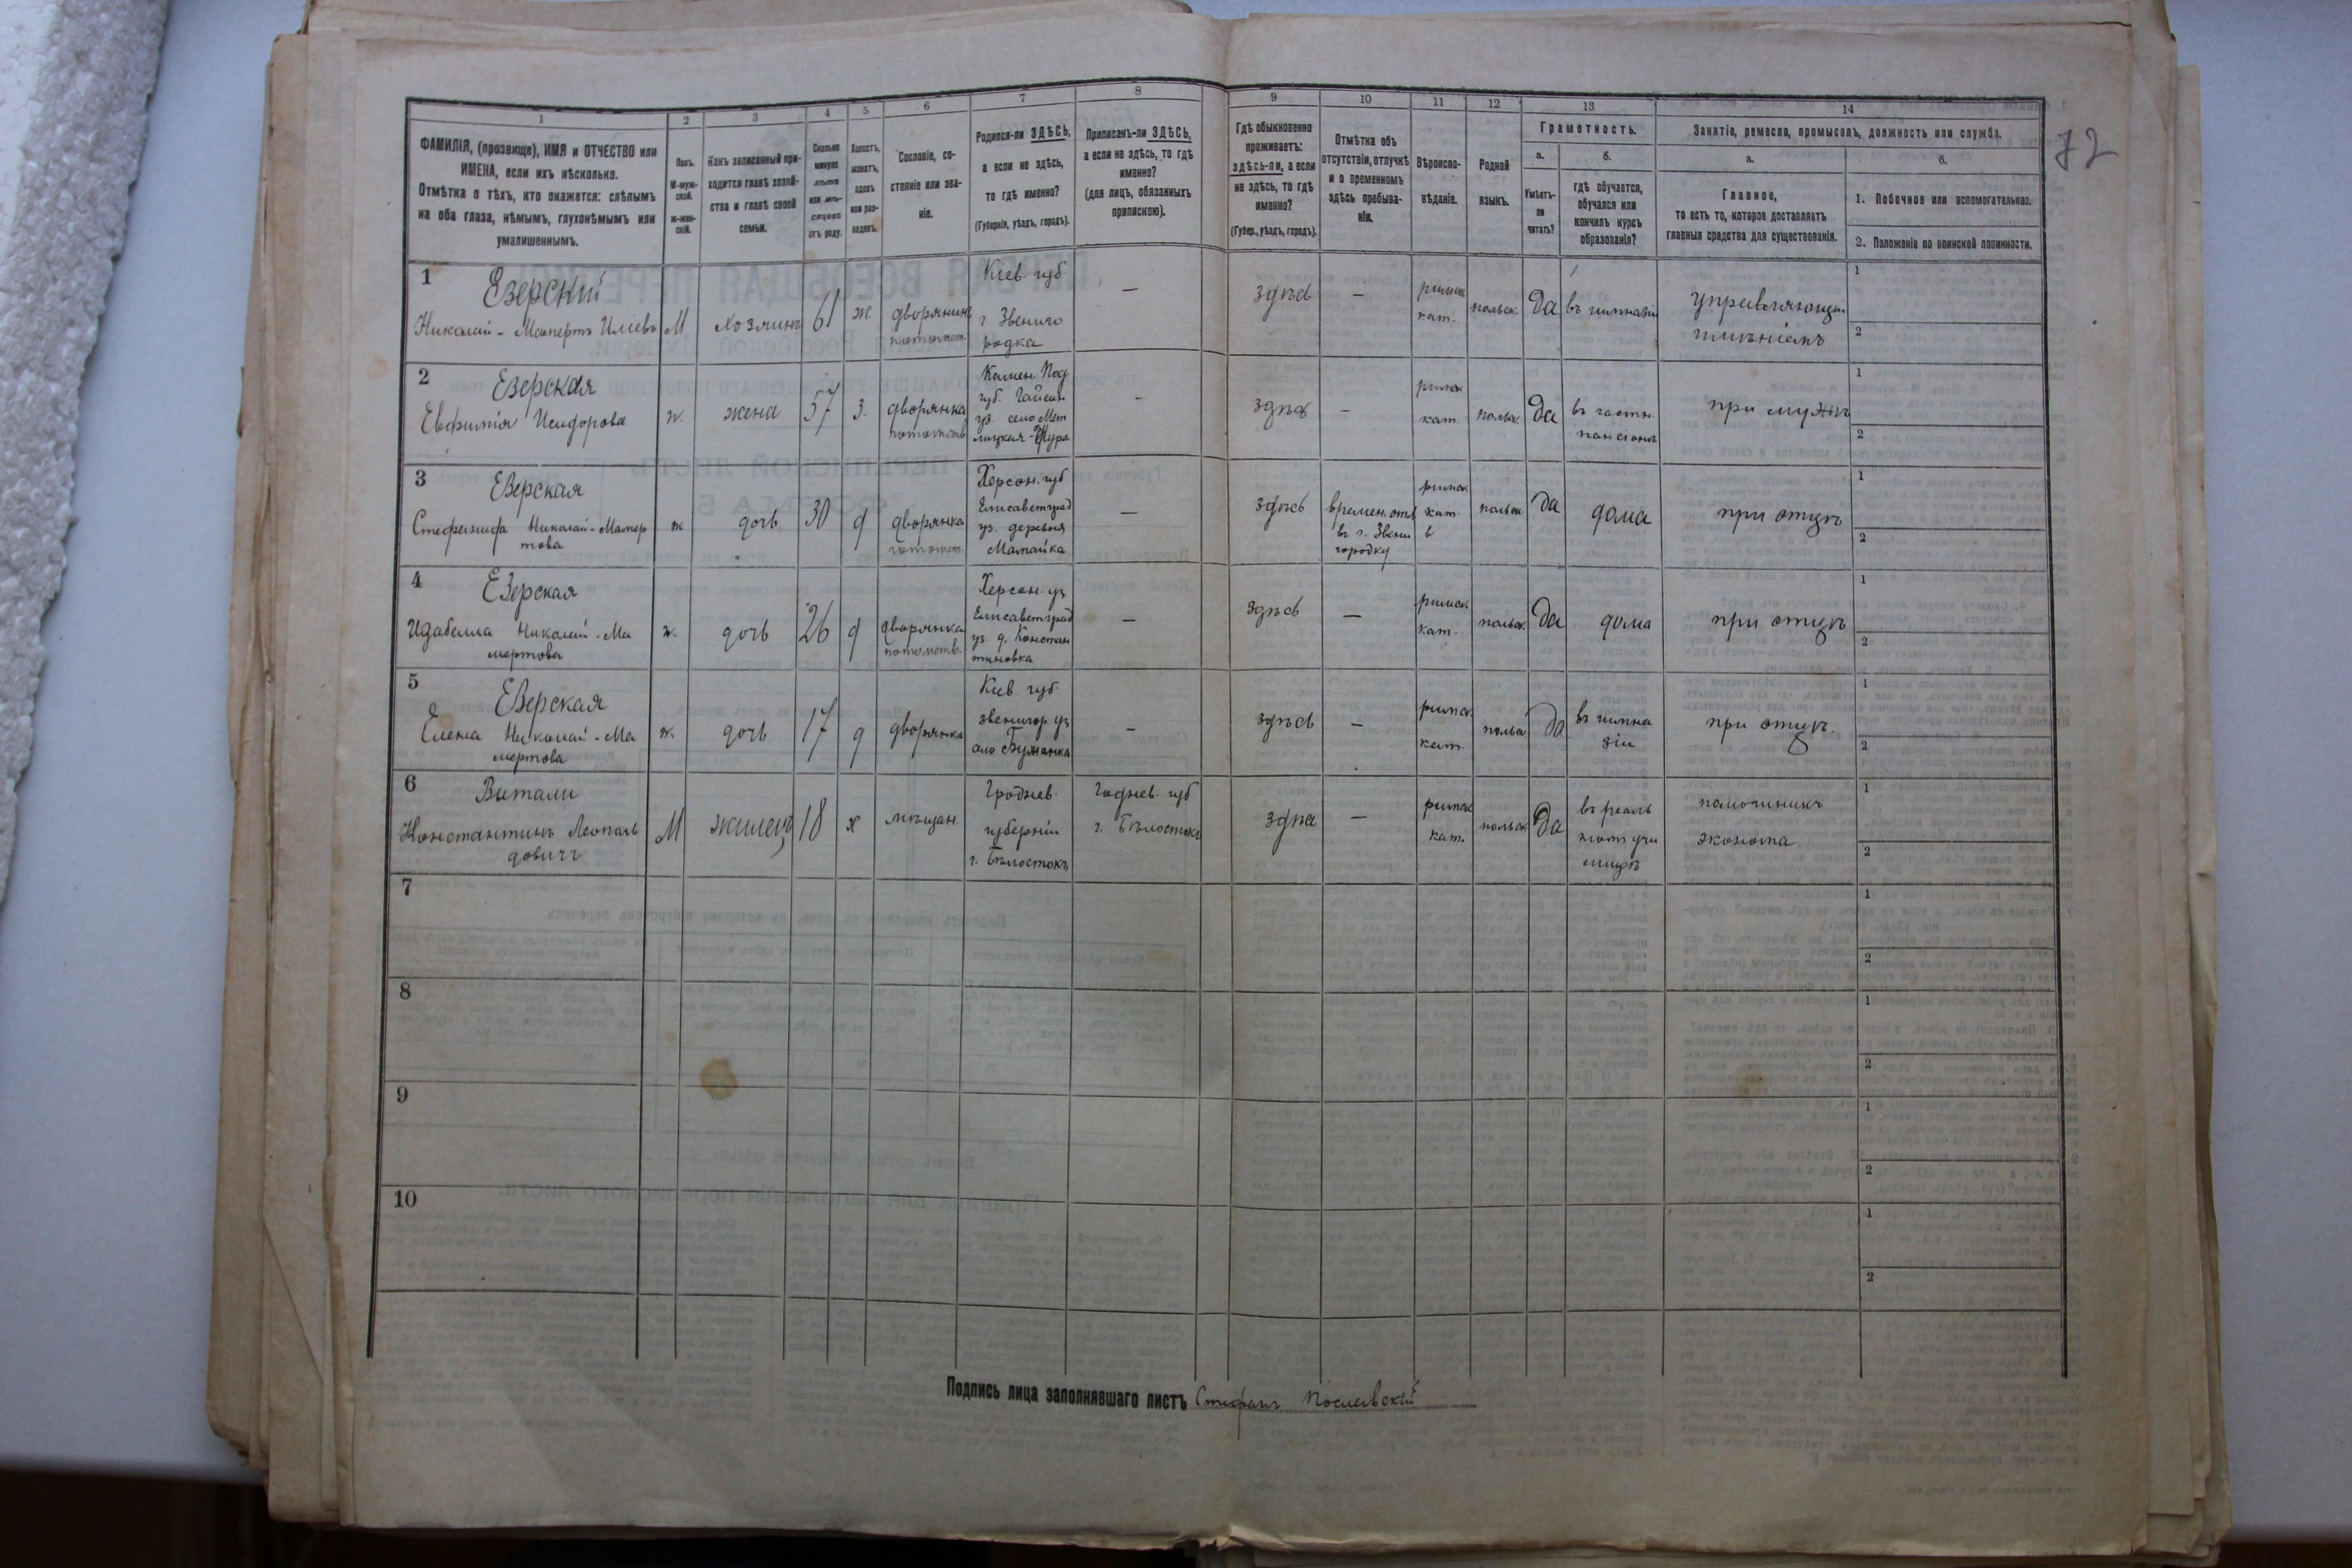 72
1 2 3 4 5 6 7 8 9 10 11 12 13 14
ФАМИЛІЯ, (прозвище), ИМЯ и ОТЧЕСТВО или
ИМЕНА, если ихъ нѣсколько.
Отмѣтка о тѣхъ, кто окажется: слѣпымъ
на оба глаза, нѣмымъ, глухонѣмымъ или
умалишеннымъ.
Полъ.
М-муж-
ской.
Ж-жен-
скій.
Какъ записанный при-
ходится главѣ хозяй-
ства и главѣ своей
семьи.
Сколько
минуло
лѣтъ
или мѣ-
сяцевъ
отъ роду.
Холостъ,
женатъ,
вдовъ
или раз-
веденъ.
Сословіе, со-
стояніе или зва-
ніе.
Родился-ли ЗДѢСЬ,
а если не здѣсь,
то гдѣ именно?
(Губернія, уѣздъ, городъ).
Приписанъ-ли ЗДѢСЬ,
а если не здѣсь, то гдѣ
именно?
(для лицъ, обязанныхъ
припискою).
Гдѣ обыкновенно
проживаетъ:
здѣсь-ли, а если
не здѣсь, то гдѣ
именно?
(Губер., уѣздъ, городъ).
Отмѣтка объ
отсутствіи, отлучкѣ
и о временномъ
здѣсь пребыва-
ніи.
Вѣроиспо-
вѣданіе.
Родной
языкъ.
Грамотность.
а.
Умѣетъ-
ли
читать?
б.
гдѣ обучается,
обучался или
кончилъ курсъ
образованія?
Занятіе, ремесло, промыселъ, должность или служба.
а.
Главное,
то есть то, которое доставляетъ
главныя средства для существованія.
б.
1. Побочное или вспомогательное.
2. Положеніе по воинской повинности.
1
Езерскій
Николай - Мамертъ Иліевъ
М
хозяинъ
61
ж.
дворянинъ
потомст.
Кіев. губ.
г. Звениго
родка
—
здѣсь
—
римск
кат.
польск
Да
въ гимназіи
управляющи
имѣніемъ
1
2
2
Езерская
Евфимія Исидорова
ж.
жена
57
з.
дворянка
потомств
Камен. Под
губ. Гайсин
уз. село Мет
—
здѣсь
—
римск
кат.
польск
Да
въ частн.
пансіонѣ
при мужѣ
1
2
3
Езерская
Стефанида Николай-Мамер
това
ж
дочь
30
д
дворянка
потомст.
Херсон. губ
Елисаветград
уз. деревня
Мамайка
—
здѣсь
времен. отл
въ г. Звени
городку
римск
кат.
польск
Да
дома
при отцѣ
1
2
4
Езерская
Изабелла Николай-Ма
мертова
ж.
дочь
26
д
дворянка
потомств.
Херсон. уз
Елисаветград
уз. д. Констан
тиновка
—
здѣсь
—
римск
кат.
польск
Да
дома
при отцѣ
1
2
5
Езерская
Елена Николай-Ма
мертова
ж.
дочь
17
д
дворянка
Кіев. губ.
звенигор уз
село Бужанка
—
здѣсь
—
римск.
кат.
польск
Да
въ гимна
зіи
при отцѣ.
1
2
6
Витали
Константинъ Леополь
довичъ
М
жилецъ
18
х
мѣщан.
Гроднев.
губерніи
г. Бѣлостокъ
Годнев. губ
г. Бѣлостокъ
здѣсь
—
римск
кат.
польск
Да
въ реаль
номъ учи
лищѣ
помощникъ
эконома
1
2
7
1
2
8
1
2
9
1
2
10
1
2
Подпись лица заполнявшаго листъ Стефанъ